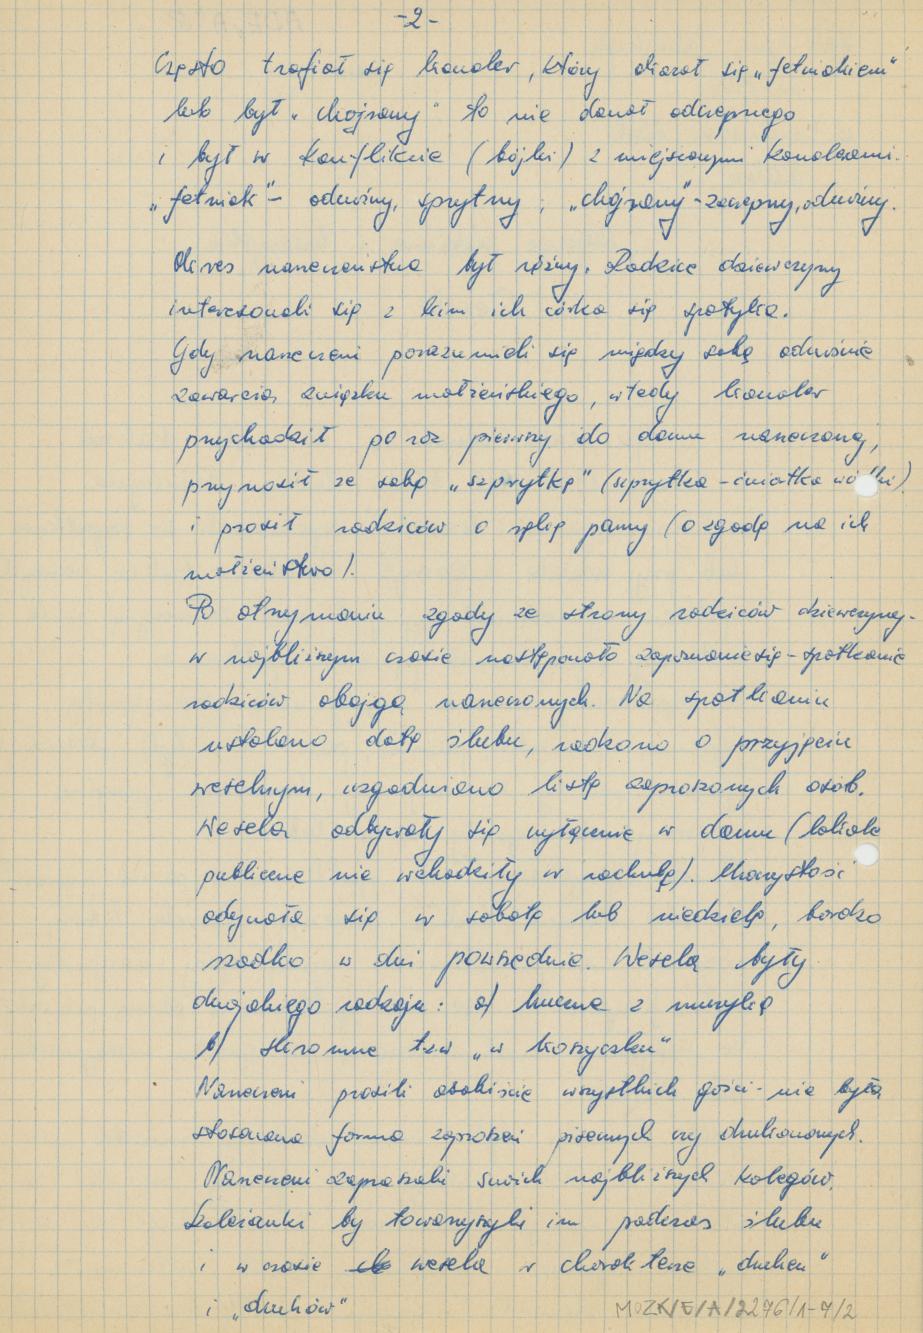 -2-
Często trafiał się kawaler, który okazał się „fetniakiem"
lub był „chojrany" to nie dawał odczepnego
i był w konflikcie (bójki) z miejscowymi kawalerami.
„fetniak" - odważny, sprytny; „chojrany" - zaczepny, odważny.
Okres narzeczeństwa był różny. Rodzice dziewczyny
interesowali się z kim ich córka się spotyka.
Gdy narzeczeni porozumieli się między sobą odnośnie
zawarcia związku małżeńskiego, wtedy kawaler
przychodził po raz pierwszy do domu narzeczonej,
przynosił ze sobą „szprytkę" (szprytka - ćwiartka wódki)
i prosił rodziców o rękę panny (o zgodę na ich
małżeństwo).
Po otrzymaniu zgody ze strony rodziców dziewczyny -
w najbliższym czasie następowało zapoznanie się - spotkanie
rodziców obojga narzeczonych. Na spotkaniu
ustalano datę ślubu, radzono o przyjęciu
weselnym, uzgadniano listę zaproszonych osób.
Wesela odbywały się wyłącznie w domu (lokale
publiczne nie wchodziły w rachubę). Uroczystość
odbywała się w sobotę lub niedzielę, bardzo
rzadko w dni powszednie. Wesela były
dwojakiego rodzaju: a) huczne z muzyką
b) skromne tzw „w koszyczku"
Narzeczeni prosili osobiście wszystkich gości - nie była
stosowana forma zaproszeń pisemnych czy drukowanych.
Narzeczeni zapraszali swoich najbliższych kolegów,
koleżanki by towarzyszyli im podczas ślubu
i w czasie wesela w charakterze „druhen"
i „druhów"
MOZK/E/A/2276/1-7/2